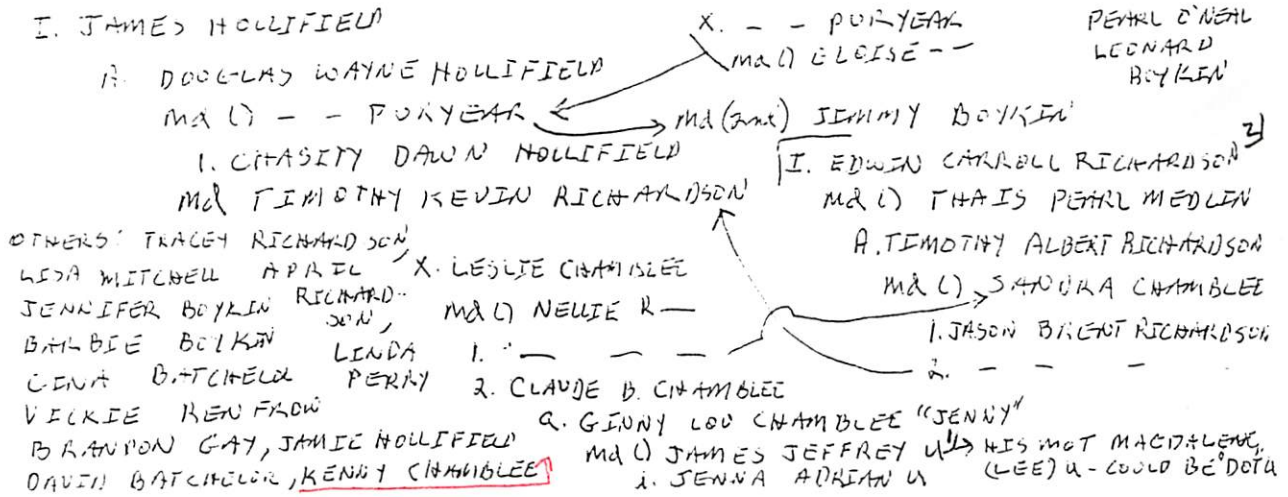 I. JAMES HOLLIFIELD
A. DOUGLAS WAYNE HOLLIFIELD
md () - - PURYEAR
1. CHASITY DAWN HOLLIFIELD
md TIMOTHY KEVIN RICHARDSON
X. - - PURYEAR
md () ELOISE - -
md (2md) JIMMY BOYKIN
PEARL O'NEAL
LEONARD
BOYKIN
I. EDWIN CARROLL RICHARDSON 3)
md () THAIS PEARL MEDLIN
A. TIMOTHY ALBERT RICHARDSON
md () SANDRA CHAMBLEE
1. JASON BRENT RICHARDSON
2. - - -
OTHERS: TRACEY RICHARDSON,
LISA MITCHELL APRIL
JENNIFER BOYKIN RICHARD-
SON,
BARBIE BOYKIN LINDA
LENA BATCHELOR PERRY
VICKIE RENFROW
BRANDON GAY, JAMIE HOLLIFIELD
DAVID BATCHELOR, KENNY CHAMBLEE
X. LESLIE CHAMBLEE
md () NELLIE R—
1. - - -
2. CLAUDE B. CHAMBLEE
a. GINNY LOU CHAMBLEE "JENNY"
md () JAMES JEFFREY U 1)
i. JENNA ADRIAN U
HIS MOT MAGDALENE
(LEE) U - COULD BE "DOT" U